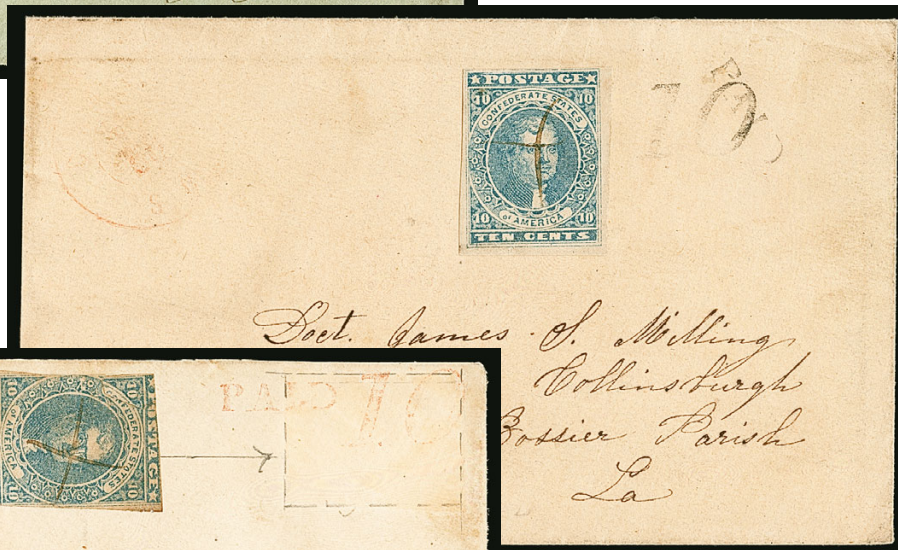 ★POSTAGE★
10 10
CONFEDERATE STATES
of AMERICA
10 10
TEN CENTS
PAID
10
Doct. James S. Milling
Collinsburgh
Bossier Parish
La
POSTAGE★
10 10
CONFEDERATE STATES
of AMERICA
10 10
PAID 10